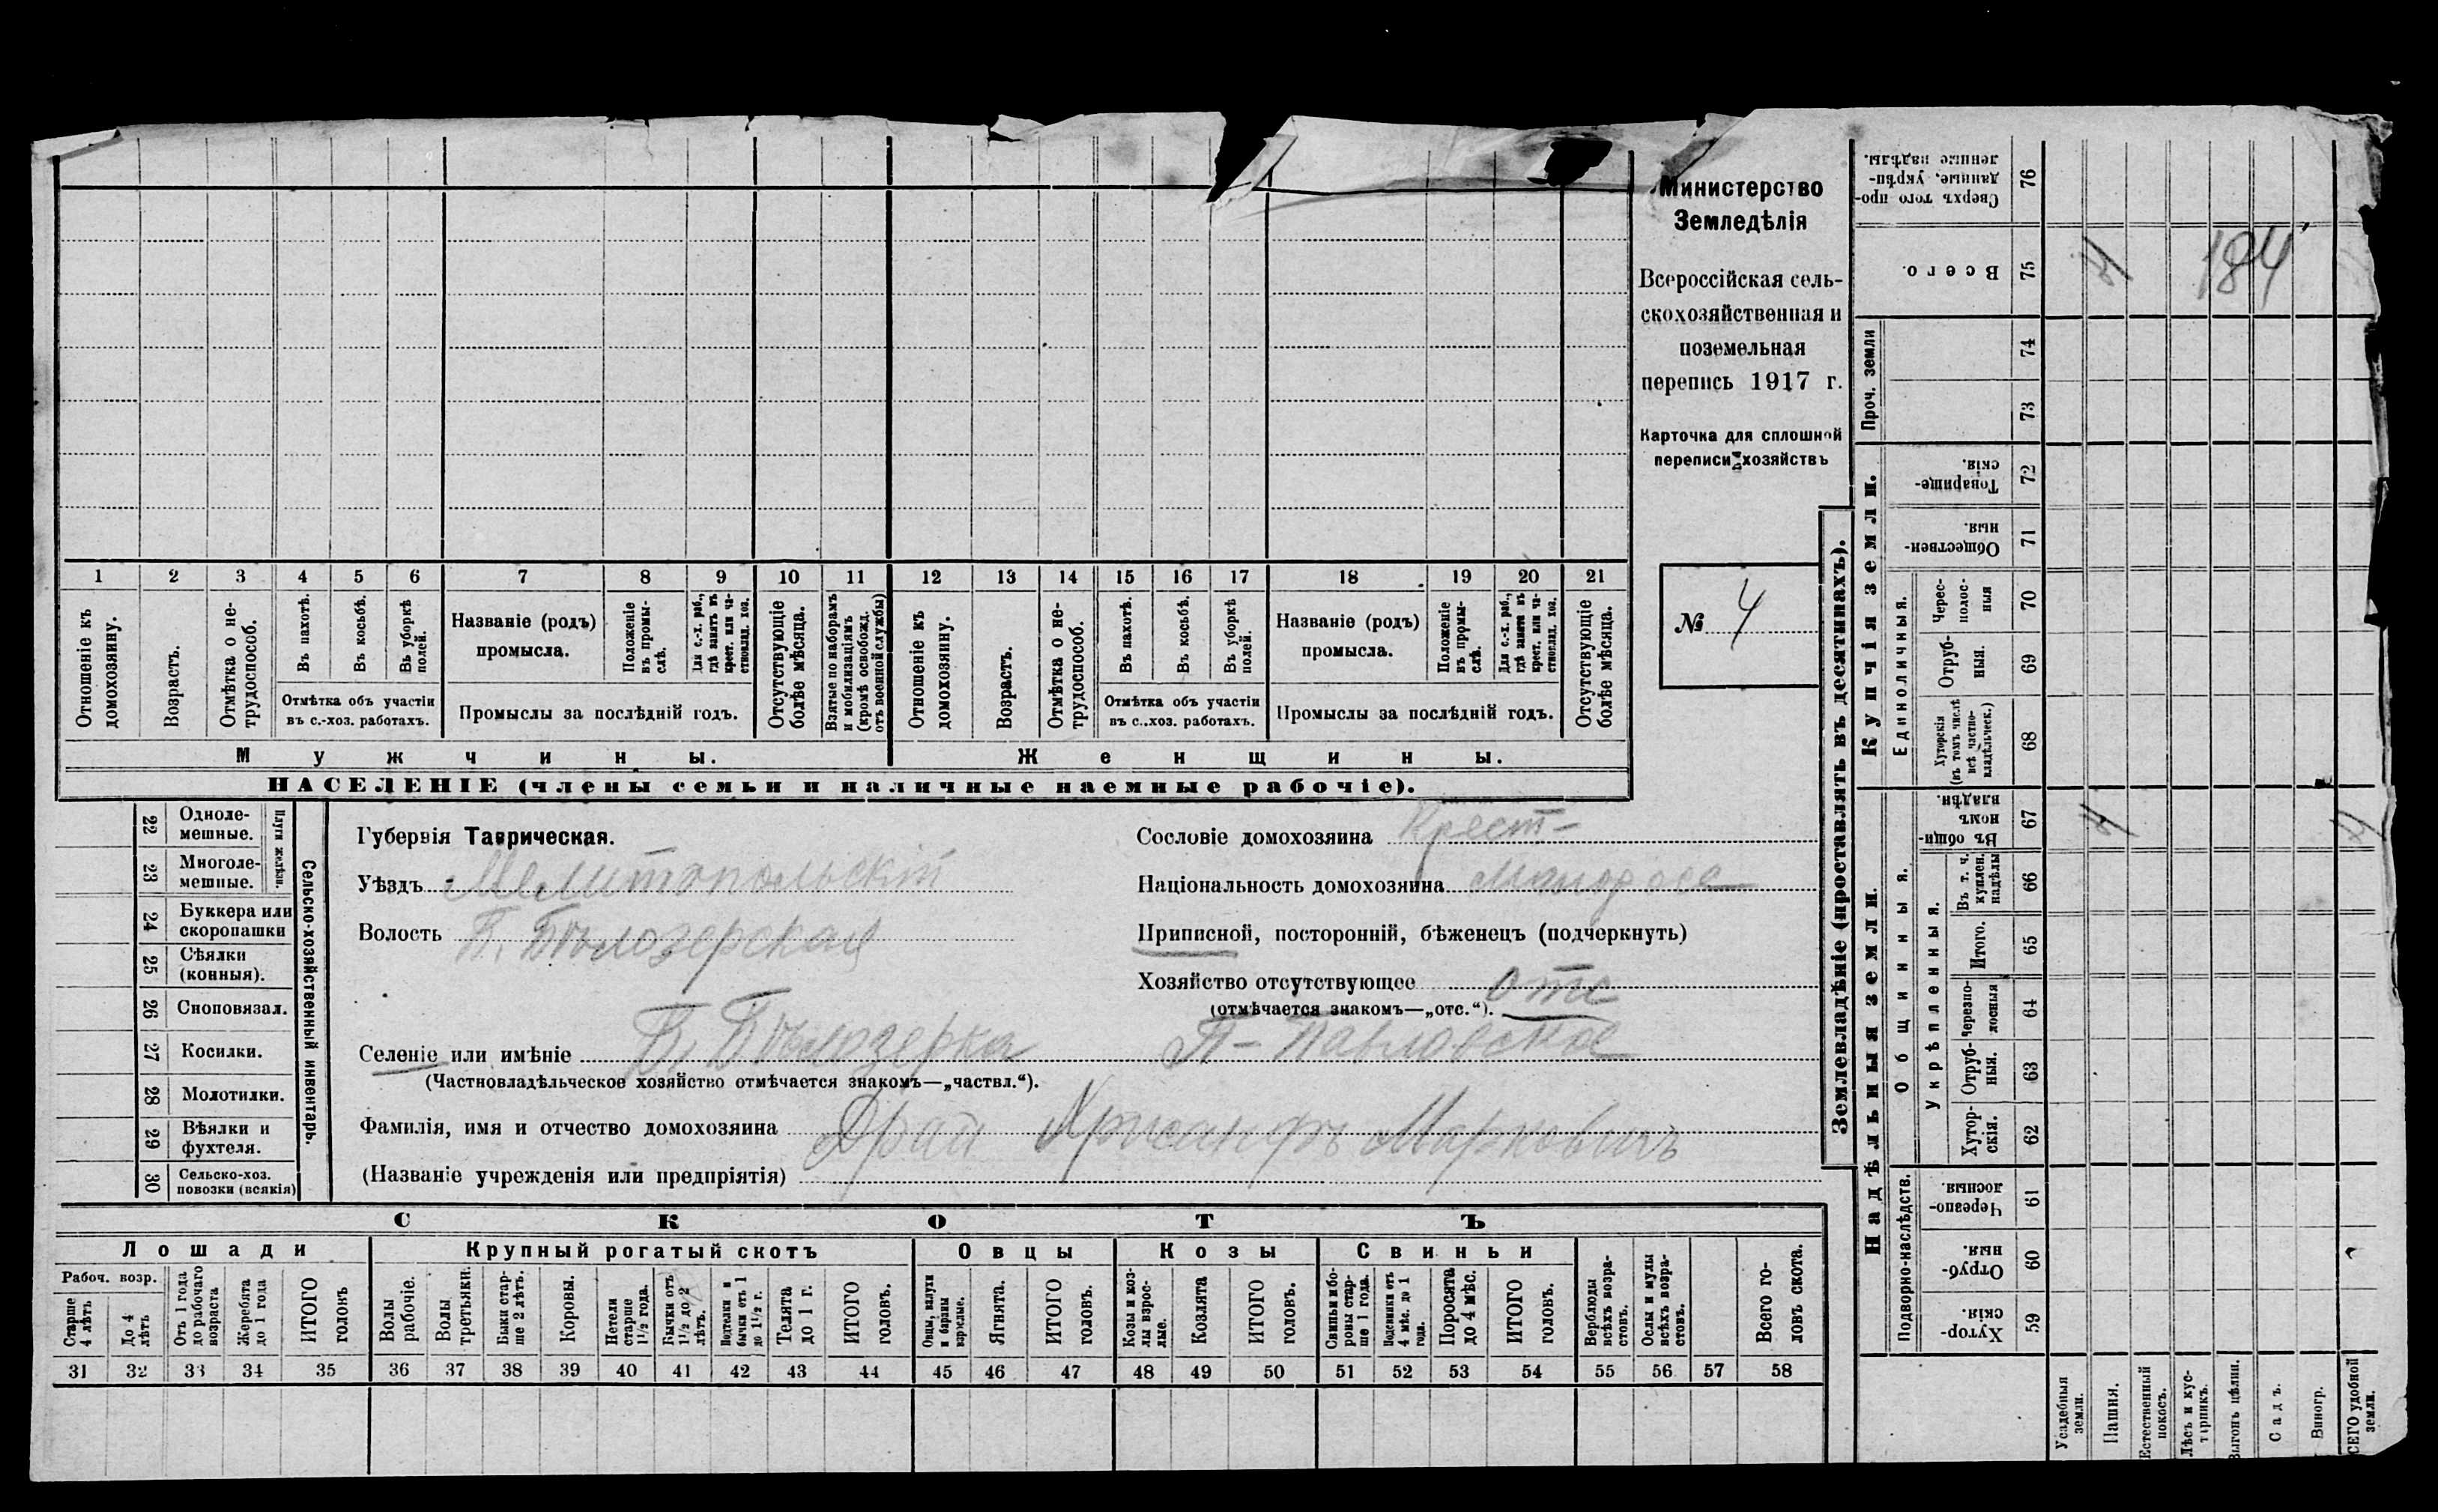 Министерство
Земледѣлія
Всероссійская сель-
скохозяйственная и
поземельная
перепись 1917 г.
Карточка для сплошной
переписи хозяйствъ
№ 4
1 2 3 4 5 6 7 8 9 10 11 12 13 14 15 16 17 18 19 20 21
Отношеніе къ домохозяину.
Возрастъ.
Отмѣтка о не-трудоспособ.
Въ пахотѣ.
Въ косьбѣ.
Въ уборкѣ полей.
Отмѣтка объ участіи
въ с.-хоз. работахъ.
Названіе (родъ)
промысла.
Положеніе въ промы-слѣ.
Для с.-х. раб., гдѣ занятъ въ крест. или ча-стновлад. хоз.
Промыслы за послѣдній годъ.
Отсутствующіе болѣе мѣсяца.
Взятые по наборамъ и мобилизаціямъ (кромѣ освобожд. отъ военной службы)
Отношеніе къ домохозяину.
Возрастъ.
Отмѣтка о не-трудоспособ.
Въ пахотѣ.
Въ косьбѣ.
Въ уборкѣ полей.
Отмѣтка объ участіи
въ с..хоз. работахъ.
Названіе (родъ)
промысла.
Положеніе въ промы-слѣ.
Для с.-х. раб., гдѣ занята въ крест. или ча-стновлад. хоз.
Промыслы за послѣдній годъ.
Отсутствующіе болѣе мѣсяца.
Мужчины. Женщины.
НАСЕЛЕНІЕ (члены семьи и наличные наемные рабочіе).
22 Одноле-мешные.
23 Многоле-мешные.
Плуги желѣзн.
24 Буккера или скоропашки
25 Сѣялки (конныя).
26 Сноповязал.
27 Косилки.
28 Молотилки.
29 Вѣялки и фухтеля.
30 Сельско-хоз. повозки (всякія)
Сельско-хозяйственный инвентарь.
Губернія Таврическая.
Уѣздъ Мелитопольскій
Волость В. Бѣлозерская
Сословіе домохозяина Крест-
Національность домохозяина малоросс
Приписной, посторонній, бѣженецъ (подчеркнуть)
Хозяйство отсутствующее отс
(отмѣчается знакомъ—„отс.“).
Селеніе или имѣніе В. Бѣлозерка П- Павловское
(Частновладѣльческое хозяйство отмѣчается знакомъ—„частвл.“).
Фамилія, имя и отчество домохозяина Драй Хрисанфъ Марковичъ
(Названіе учрежденія или предпріятія)
СКОТЪ
Лошади Крупный рогатый скотъ Овцы Козы Свиньи
Рабоч. возр.
Старше 4 лѣтъ
До 4 лѣтъ
Отъ 1 года до рабочаго возраста
Жеребята до 1 года
ИТОГО головъ
Волы рабочіе.
Волы третьяки.
Быки стар-ше 2 лѣтъ.
Коровы.
Нетели старше 1½ года.
Бычки отъ 1½ до 2 лѣтъ.
Подтелки и бычки отъ 1 до 1½ г.
Телята до 1 г.
ИТОГО головъ.
Овцы, валухи и бараны взрослые.
Ягнята.
ИТОГО головъ.
Козы и коз-лы взрос-лые.
Козлята
ИТОГО головъ.
Свиньи и бо-ровы стар-ше 1 года.
Подсвинки отъ 4 мѣс. до 1 года.
Поросята до 4 мѣс.
ИТОГО головъ.
Верблюды всѣхъ возра-стовъ.
Ослы и мулы всѣхъ возра-стовъ.
Всего го-ловъ скота.
31 32 33 34 35 36 37 38 39 40 41 42 43 44 45 46 47 48 49 50 51 52 53 54 55 56 57 58
Землевладѣніе (проставлять въ десятинахъ).
Сверхъ того про-данные, укрѣп-ленные надѣлы. 76
Всего. 75
184
Проч. земли 74 73
Купчія земли.
Товарище-скія. 72
Обществен-ныя. 71
Единоличныя.
Черес-полос-ныя 70
Отруб-ныя. 69
Хуторскія (въ томъ числѣ всѣ частно-владѣльческ.) 68
Надѣльныя земли.
Общинныя.
Въ общи-номъ владѣн. 67
Укрѣпленныя.
Въ т. ч. куплен. надѣлы 66
Итого. 65
Черезпо-лосныя 64
Отруб-ныя. 63
Хутор-скія. 62
Подворно-наслѣдств.
Черезпо-лосныя. 61
Отруб-ныя. 60
Хутор-скія 59
Усадебныя земли.
Пашня.
Естественный покосъ.
Лѣсъ и кус-тарникъ.
Выгонъ цѣлин.
Садъ.
Виногр.
СЕГО удобной земли.